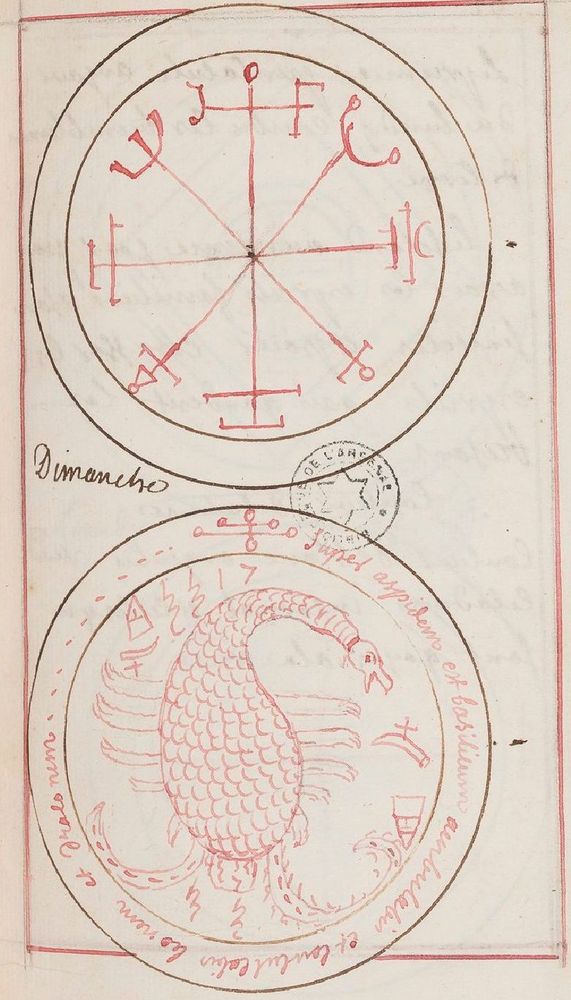 J F
C
Dimanche
BIBLIOTHEQUE DE L'ARSENAL
17
Super aspidem et basilicum ambulabis et conculcabis leonem et draconem